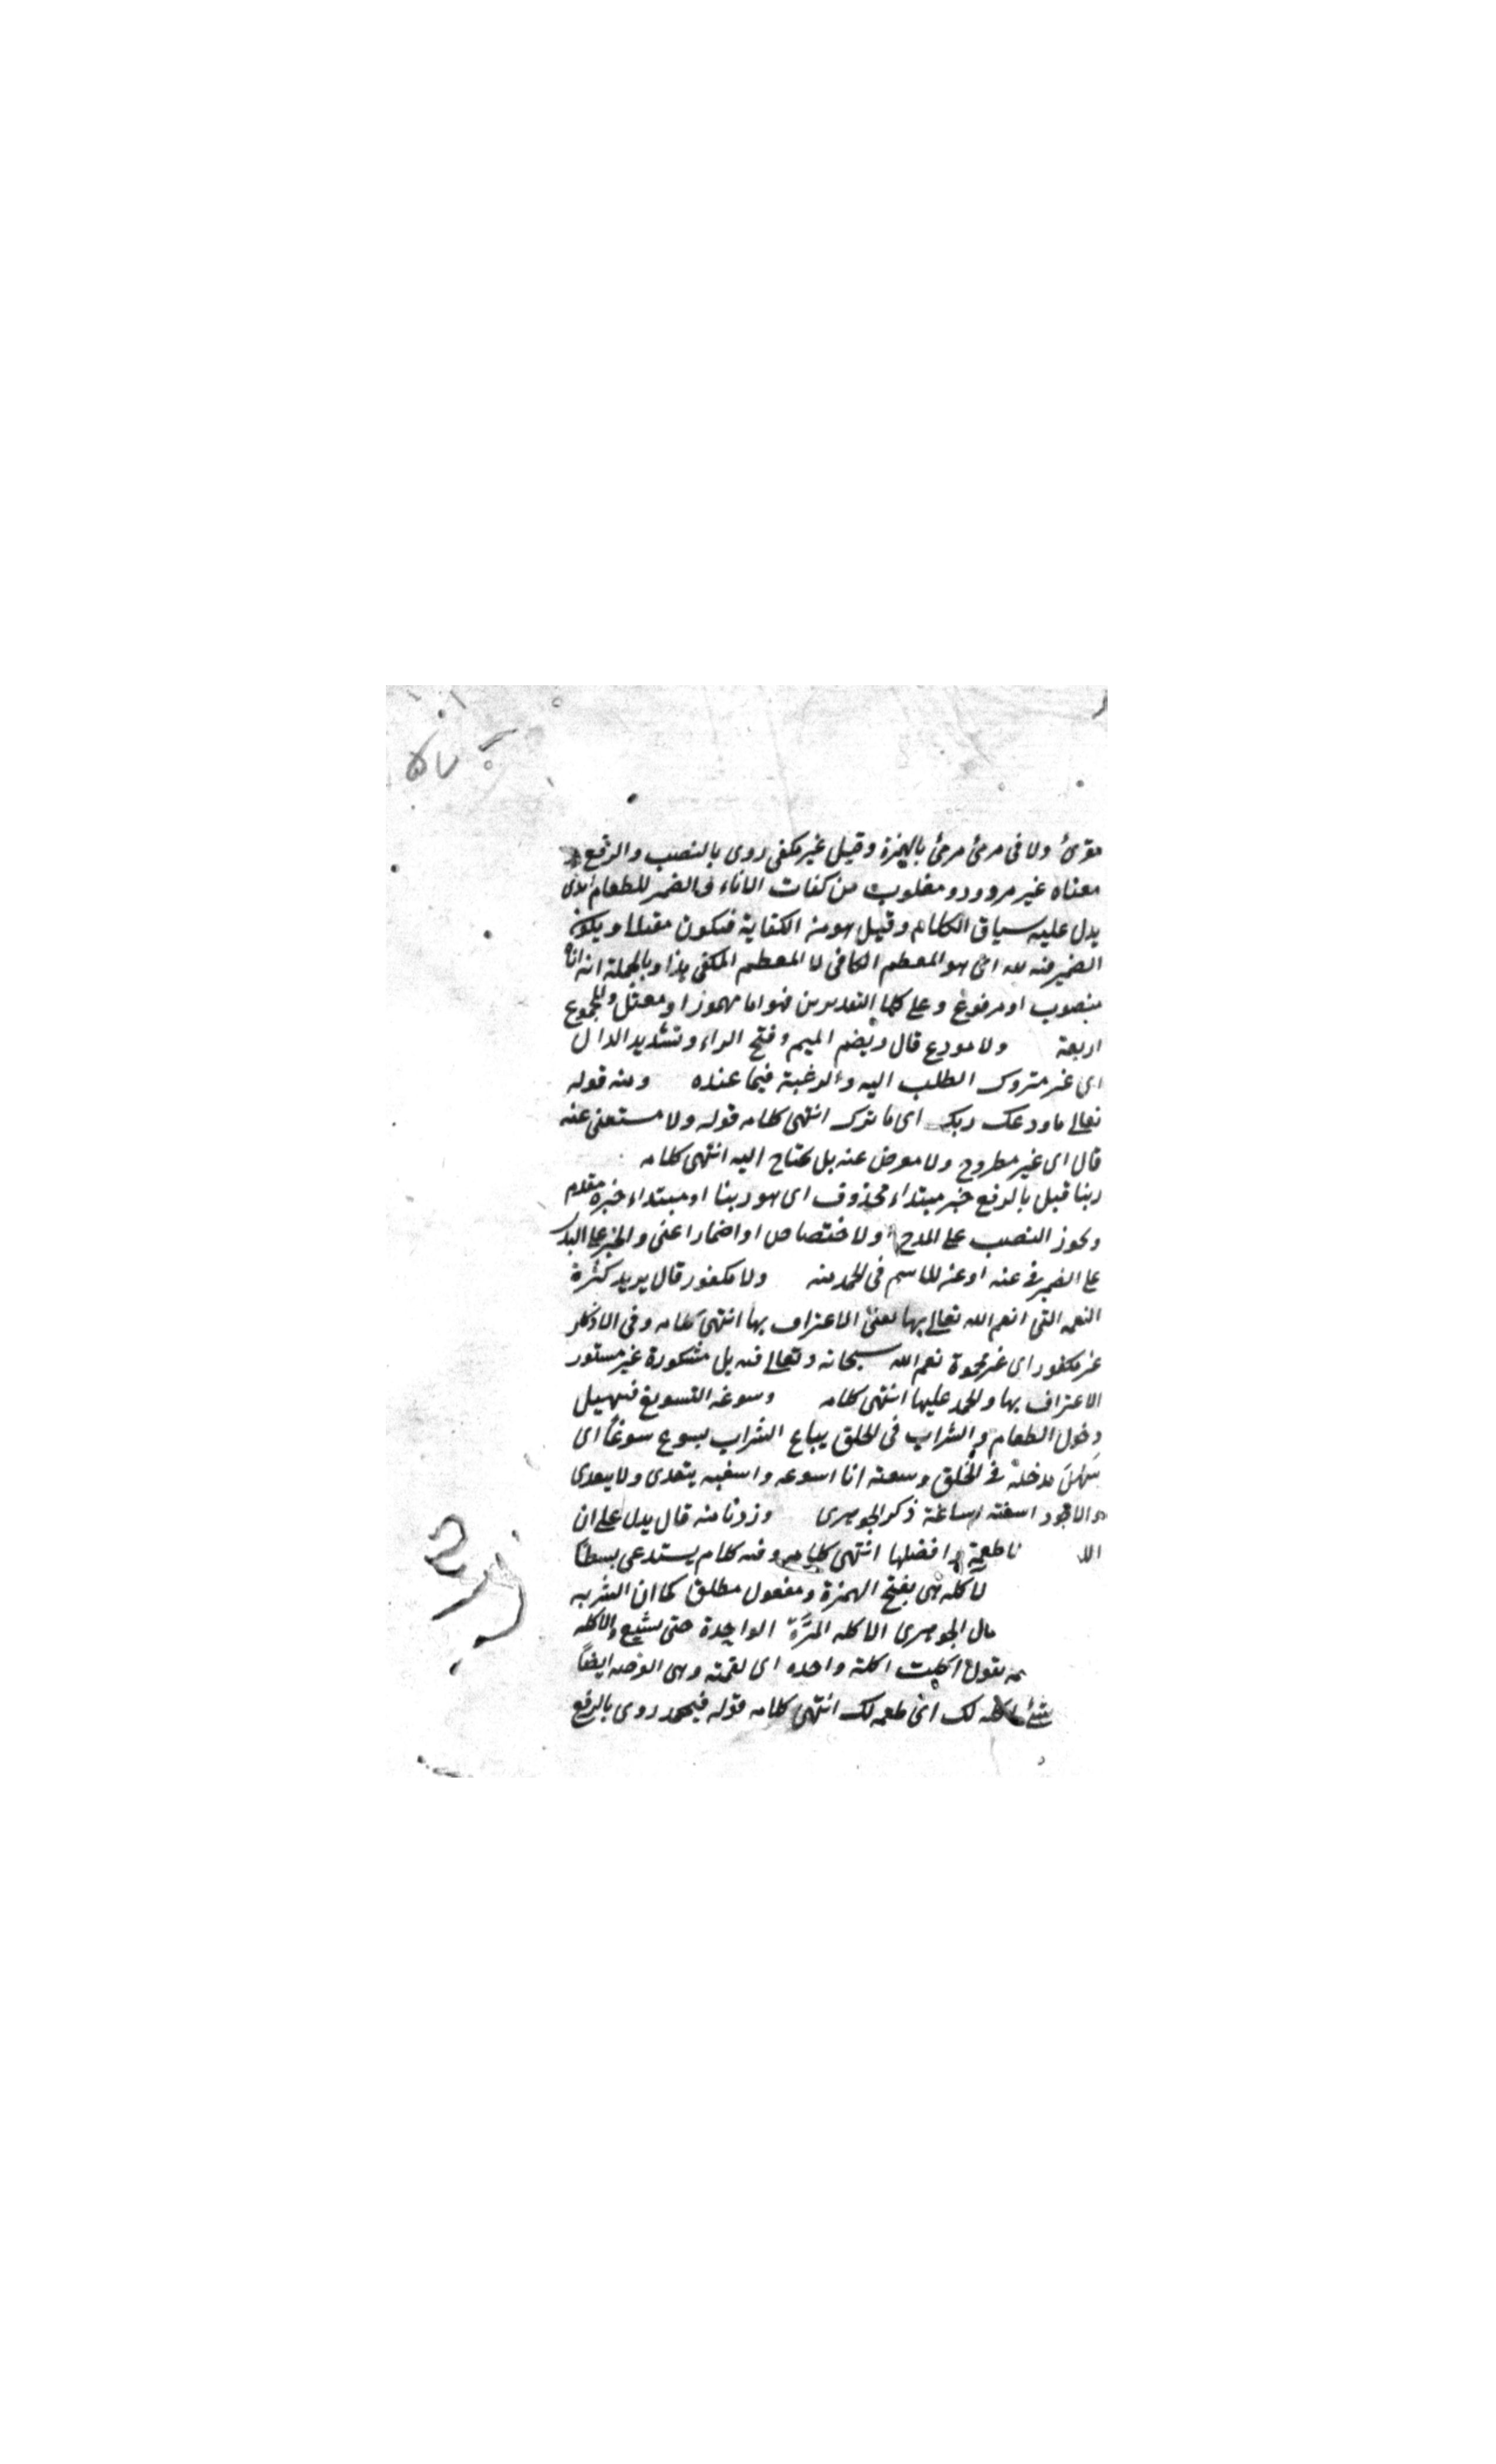 مقرئ ولا فى مرمى مرمئ بالهمزة وقيل غير مكفى روى بالنصب والرفع
معناه غير مردود ومقلوب من كفات الاناء فالضمير للطعام الذى
يدل عليه سياق الكلام وقيل هو من الكفاية فيكون معتلا ويكون
الضمير فيه لله اى هو المطعم الكافى لا المطعم المكفى هذا وبالجملة انه اما
منصوب او مرفوع وعلى كلا التقديرين فهو اما مهموز او معتل والمجموع
اربعة ولا مودع قال ويضم الميم وفتح الراء وتشديد الدال
اى غير متروك الطلب اليه والرغبة فيما عنده ومنه قوله
تعالى ما ودعك ربك اى ما ترك انتهى كلامه قوله ولا مستغنى عنه
قال اى غير مطروح ولا معرض عنه بل يحتاج اليه انتهى كلامه
ربنا قيل بالرفع خبر مبتداء محذوف اى هو ربنا او مبتداء خبره مقدم
ويجوز النصب على المدح ولاختصاص او اضمار اعنى والجر على البدل
على الضمير فى عنه او عنه للاسم فى الحمد منه ولا مكفور قال يريد كثرة
النعمه التى انعم الله تعالى بها لعنى الاعتراف بها انتهى كلامه وفى الاذكار
غير مكفور اى غير مجحودة نعم الله سبحانه وتعالى فيه بل مشكورة غير مستور
الاعتراف بها والحمد عليها انتهى كلامه وسوغه التسويغ تسهيل
دخول الطعام والشراب فى الحلق يباع الشراب يسوغ سوغا اى
سَهُلَ مدخله فى الحلق وسعته انا اسوغه واسغيه يتعدى ولا يتعدى
والاجود اسغته اساغة ذكر الجوهرى وزدنا منه قال يدل على ان
اللبـ نا طعمة وافضلها انتهى كلامه وفيه كلام يستدعى بسطا
لآكله هى بفتح الهمزة ومفعول مطلق كما ان الشربه
قال الجوهرى الاكله المَرَّة الواحدة حتى يشبع والاكله
ـمه تقول اكلت اكلة واحده اى لقمته وهى القرصه ايضًا
شئ اكله لك اى طعمه لك انتهى كلامه قوله فيحمد روى بالرفع